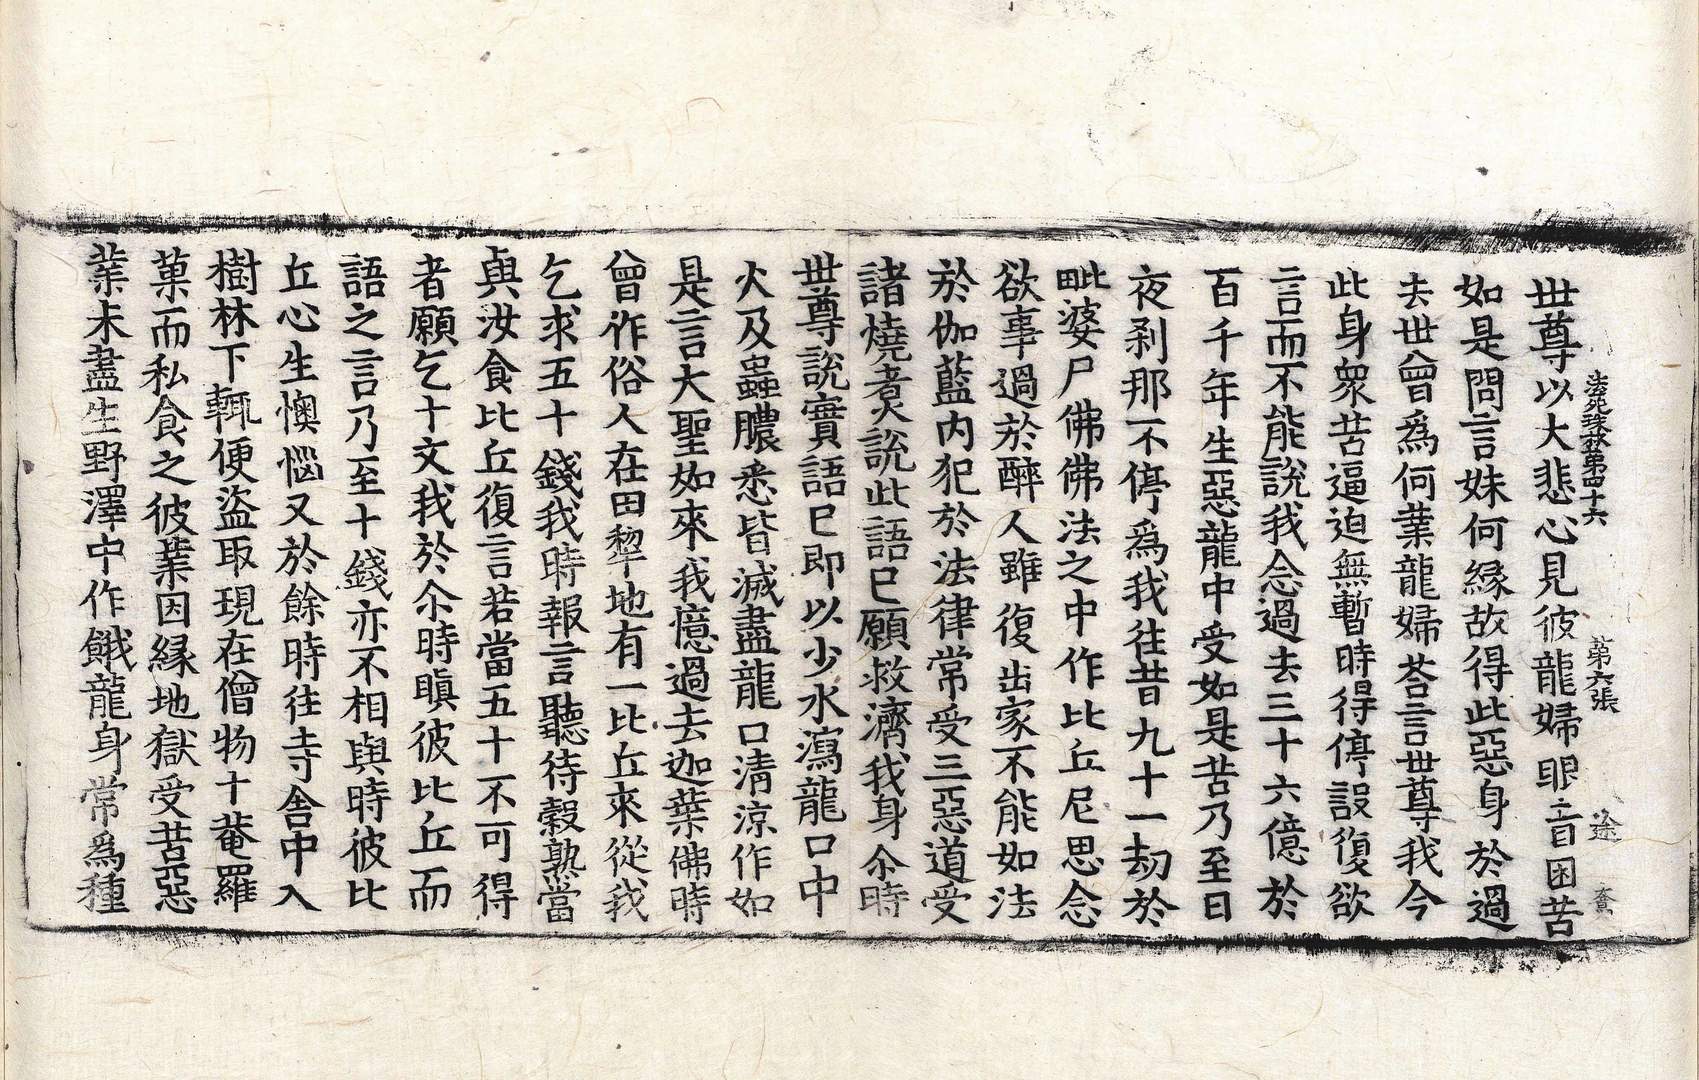 法苑珠林第四十六 第六張 途
世尊以大悲心見彼龍婦眼盲困苦
如是問言妹何緣故得此惡身於過
去世曾爲何業龍婦荅言世尊我今
此身衆苦逼迫無暫時得停設復欲
言而不能說我念過去三十六億於
百千年生惡龍中受如是苦乃至日
夜刹那不停爲我往昔九十一劫於
毗婆尸佛佛法之中作比丘尼思念
欲事過於醉人雖復出家不能如法
於伽藍內犯於法律常受三惡道受
諸燒煑說此語已願救濟我身尒時
世尊說實語已即以少水瀉龍口中
火及蟲膿悉皆滅盡龍口清涼作如
是言大聖如來我憶過去迦葉佛時
曾作俗人在田犂地有一比丘來從我
乞求五十錢我時報言聽待穀熟當
與汝食比丘復言若當五十不可得
者願乞十文我於尒時瞋彼比丘而
語之言乃至十錢亦不相與時彼比
丘心生懊惱又於餘時往寺舍中入
樹林下輒便盜取現在僧物十菴羅
菓而私食之彼業因緣地獄受苦惡
業未盡生野澤中作餓龍身常爲種